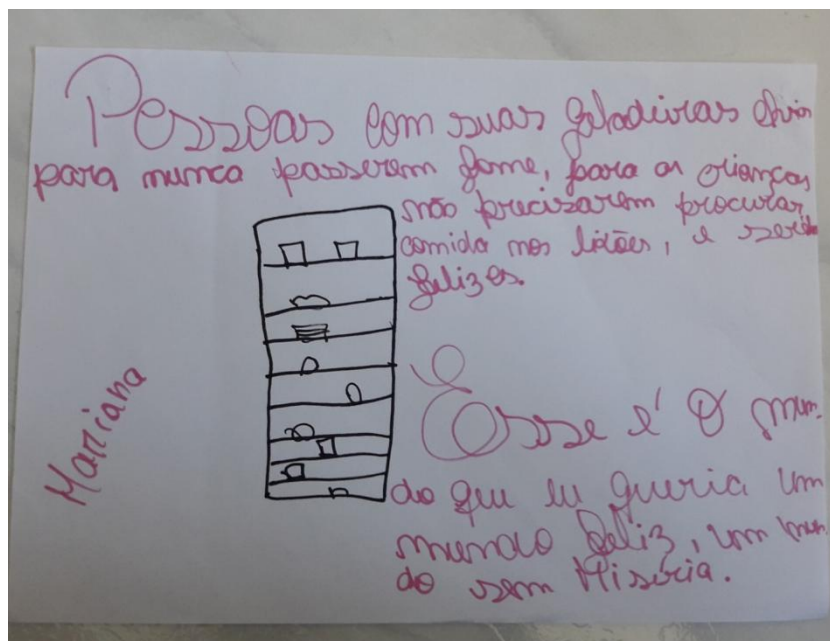 Pessoas com suas geladeiras cheias
para nunca passerem fome, para as crianças
não precisarem procurar
comida nos lixões, e serem
felizes.
Mariana
Esse é O mun-
do que eu queria um
mundo feliz, um mun-
do sem Miséria.